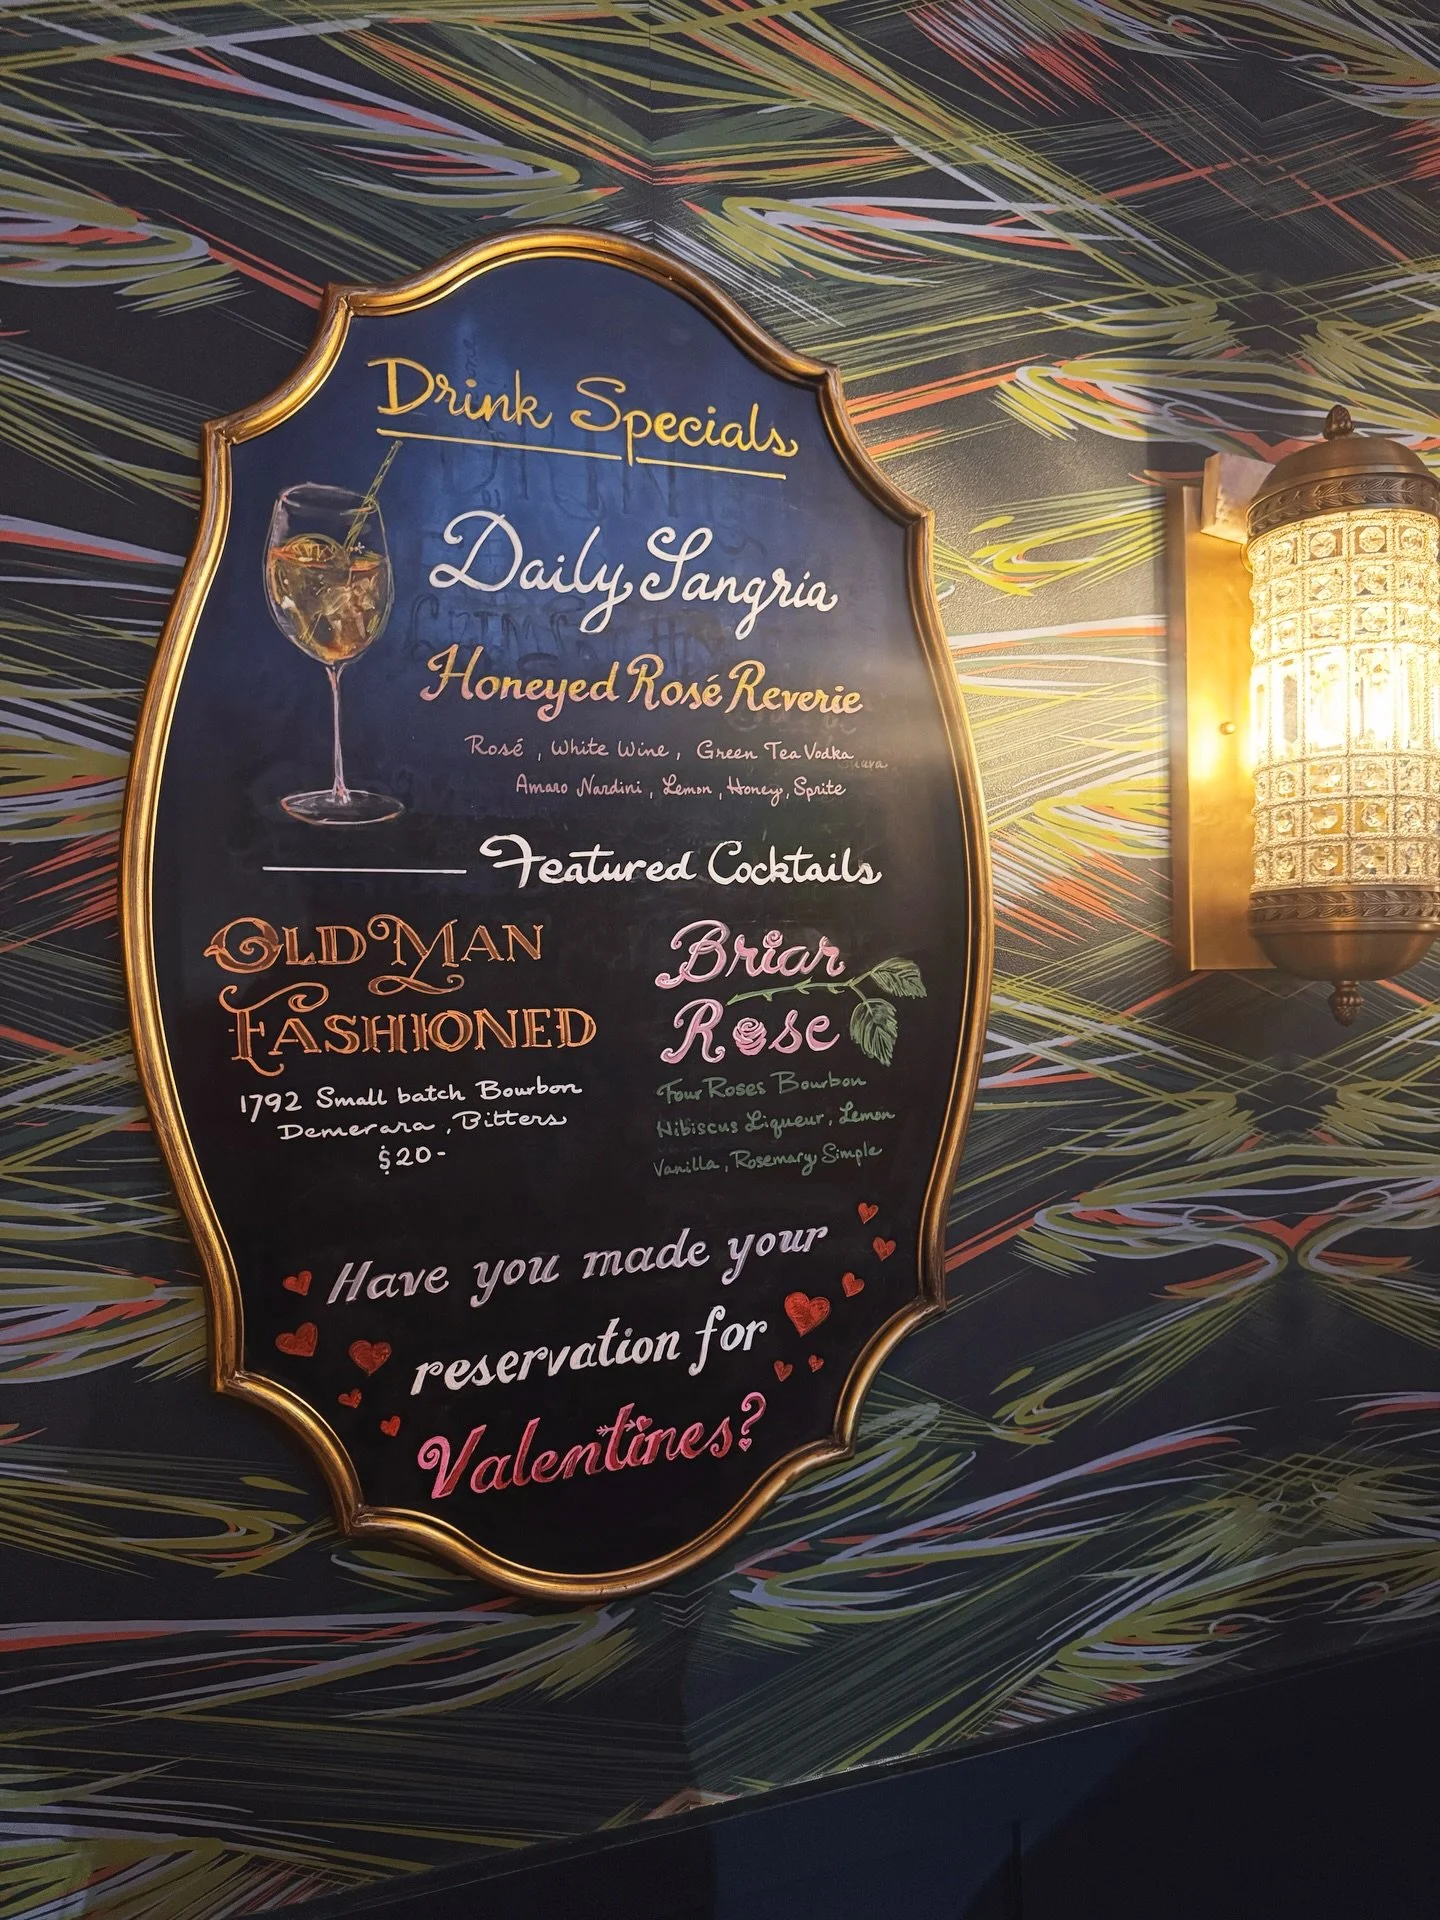 Drink Specials
Daily Sangria
Honeyed Rosé Reverie
Rosé, White Wine, Green Tea Vodka
Amaro Nardini, Lemon, Honey, Sprite
Featured Cocktails
OLD MAN
FASHIONED
1792 Small batch Bourbon
Demerara, Bitters
$20-
Briar
Rose
Four Roses Bourbon
Hibiscus Liqueur, Lemon
Vanilla, Rosemary Simple
Have you made your
reservation for
Valentines?